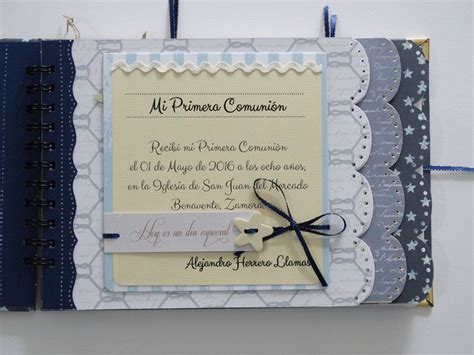 Mi Primera Comunión
Recibí mi Primera Comunión
el 01 de Mayo de 2016 a los ocho años,
en la Iglesia de San Juan del Mercado
Benavente, Zamora
Hoy es un día especial
Alejandro Herrero Llamas